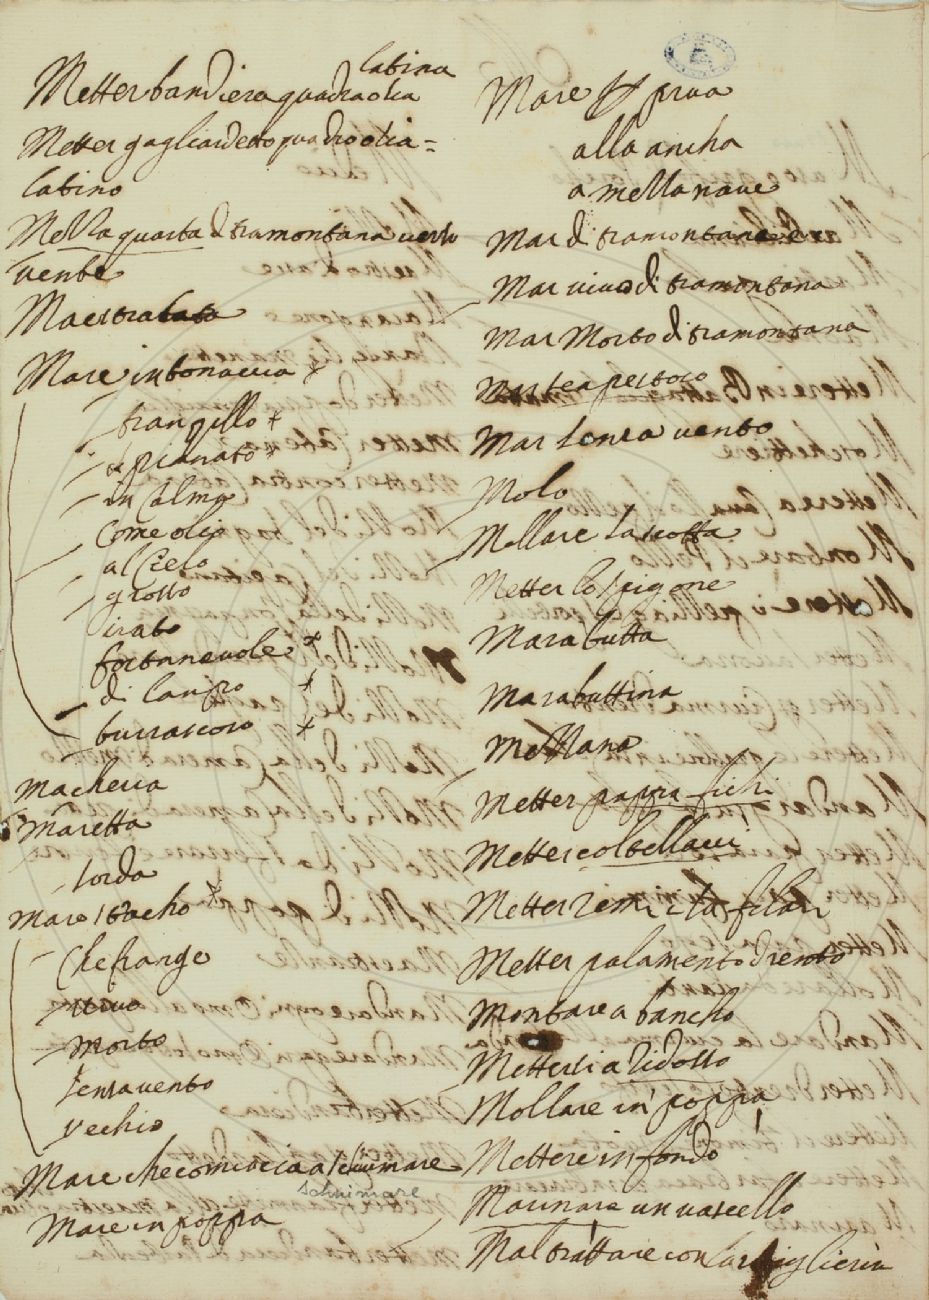 Metter bandiera quadra o la
latina
Metter gagliardetto quadro o la=
latino
Mezza quarta di tramontana verso
vente
Maestralata
Mare in bonaccia
tranqillo
spianato
in Calma
Come olio
al Cielo
grosso
irato
fortunevole
di lampo
burrascoso
macheria
maretta
sorda
Mare stracho
Che frange
vivo
morto
senza vento
vechio
Mare che comincia a schiumare
schiumare
Mare in poppa
Mare per prua
alla ancha
a mezza nave
Mar di tramontana
Mar vivo di tramontana
Mar Morto di tramontana
Mar tempestoso
Mar senza vento
Molo
Mollare la scotta
Metter lo spigone
Marabutta
Marabuttina
Mezzana
Metter pappa fichi
Metter coltellacci
Metter remi
Metter palamento drento
Montare a bancho
Mettersi a ridosso
Mollare in poppa
Mettere in fondo
Marinare un vascello
Maltrattare con l'artiglieria